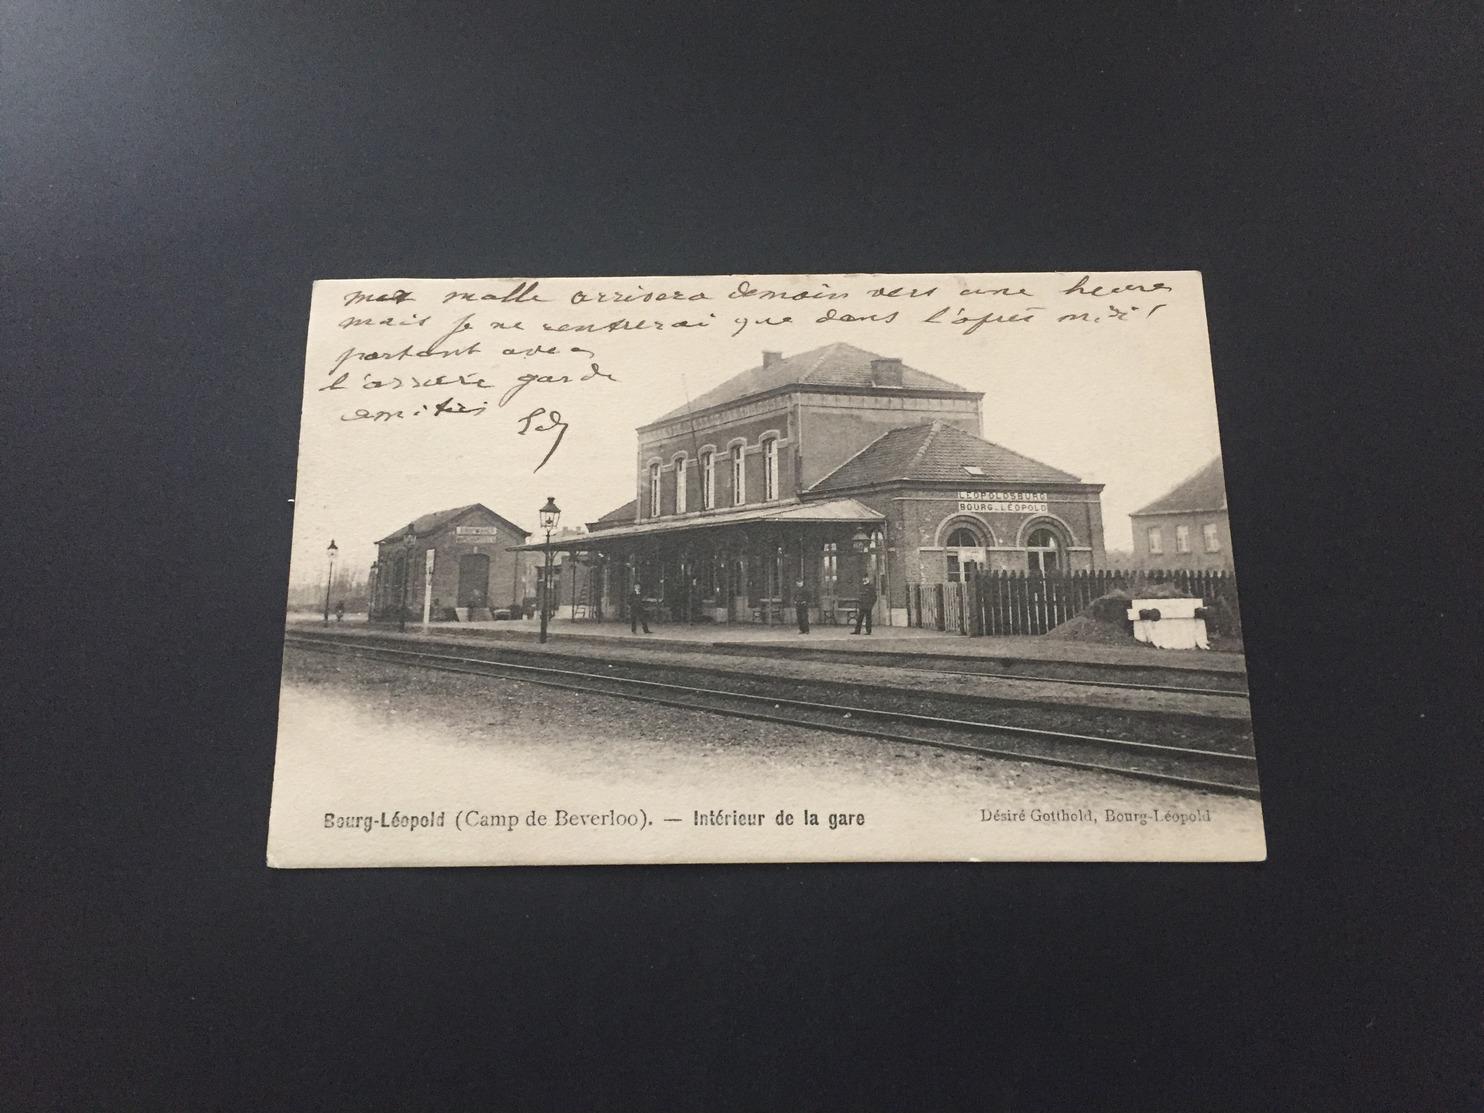 ma malle arrivera demain vers une heure
mais je ne rentrerai que dans l'après midi
partant avec
l'arrière garde
amitiés
LEOPOLDSBURG
BOURG-LÉOPOLD
Bourg-Léopold (Camp de Beverloo). — Intérieur de la gare
Désiré Gotthold, Bourg-Léopold